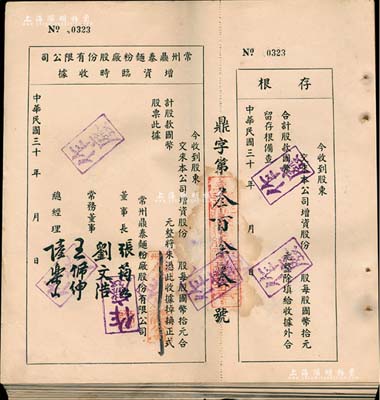 上海阳明拍卖
№ 0323
常州鼎泰麵粉廠股份有限公司
增資臨時收據
今收到股東
交來本公司增資股份 股每股國幣拾元合
計股款國幣 元整將來憑此收據掉換正式
股票此據
常州鼎泰麵粉廠股份有限公司
董事長
常務董事 劉文浩
王佩仲
總經理
中華民國三十 年 月 日
鼎字第 號
№ 0323
存根
今收到股東
交來本公司增資股份 股每股國幣拾元
合計股款國幣 元整除填給收據外合
留存根備查
中華民國三十 年 月 日